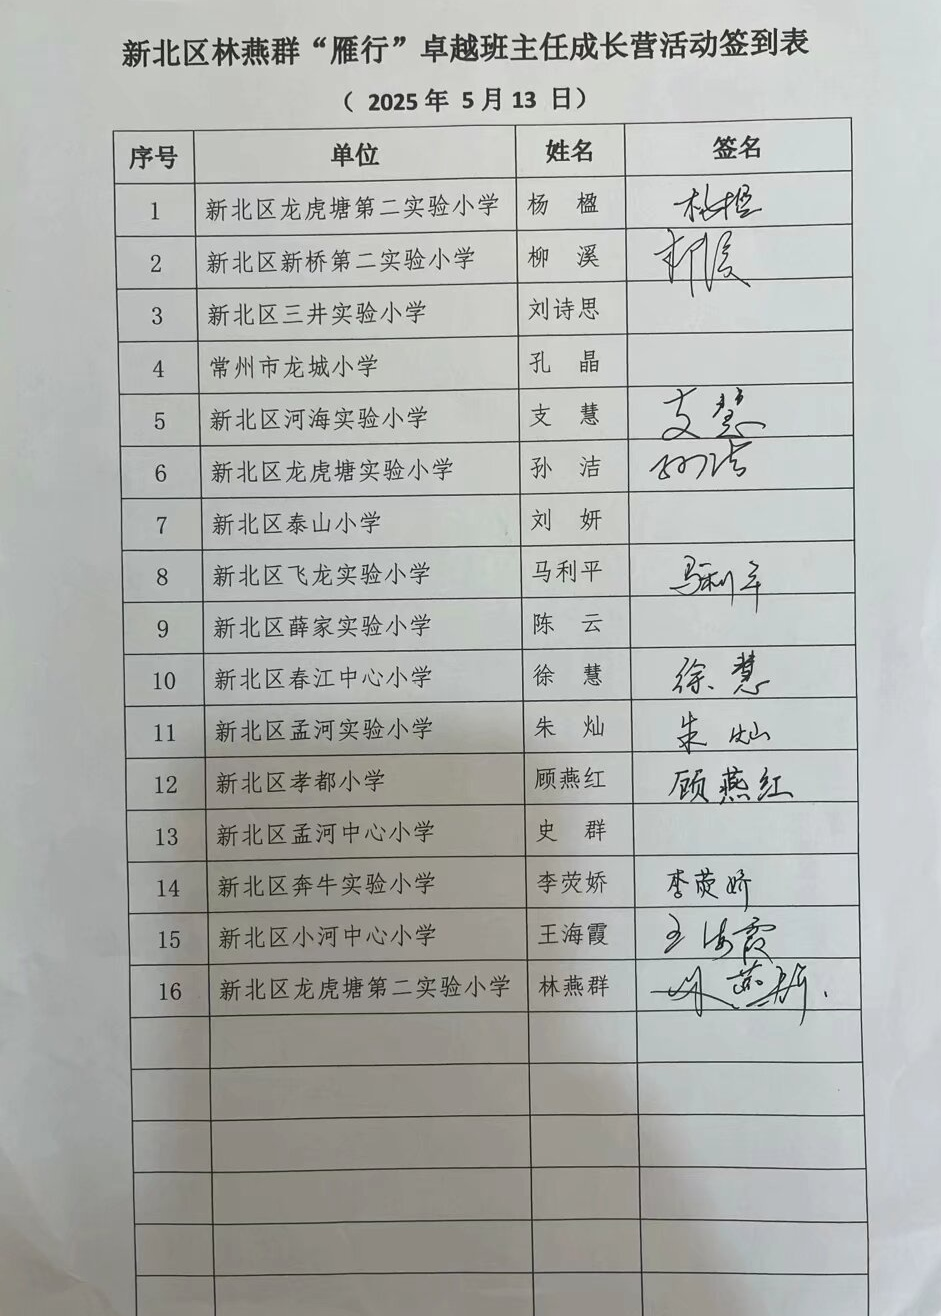 新北区林燕群“雁行”卓越班主任成长营活动签到表
（ 2025 年 5 月 13 日）
序号 单位 姓名 签名
1 新北区龙虎塘第二实验小学 杨 楹 杨楹
2 新北区新桥第二实验小学 柳 溪 柳溪
3 新北区三井实验小学 刘诗思
4 常州市龙城小学 孔 晶
5 新北区河海实验小学 支 慧 支慧
6 新北区龙虎塘实验小学 孙 洁 孙洁
7 新北区泰山小学 刘 妍
8 新北区飞龙实验小学 马利平 马利平
9 新北区薛家实验小学 陈 云
10 新北区春江中心小学 徐 慧 徐慧
11 新北区孟河实验小学 朱 灿 朱灿
12 新北区孝都小学 顾燕红 顾燕红
13 新北区孟河中心小学 史 群
14 新北区奔牛实验小学 李荧娇 李荧娇
15 新北区小河中心小学 王海霞 王海霞
16 新北区龙虎塘第二实验小学 林燕群 林燕群